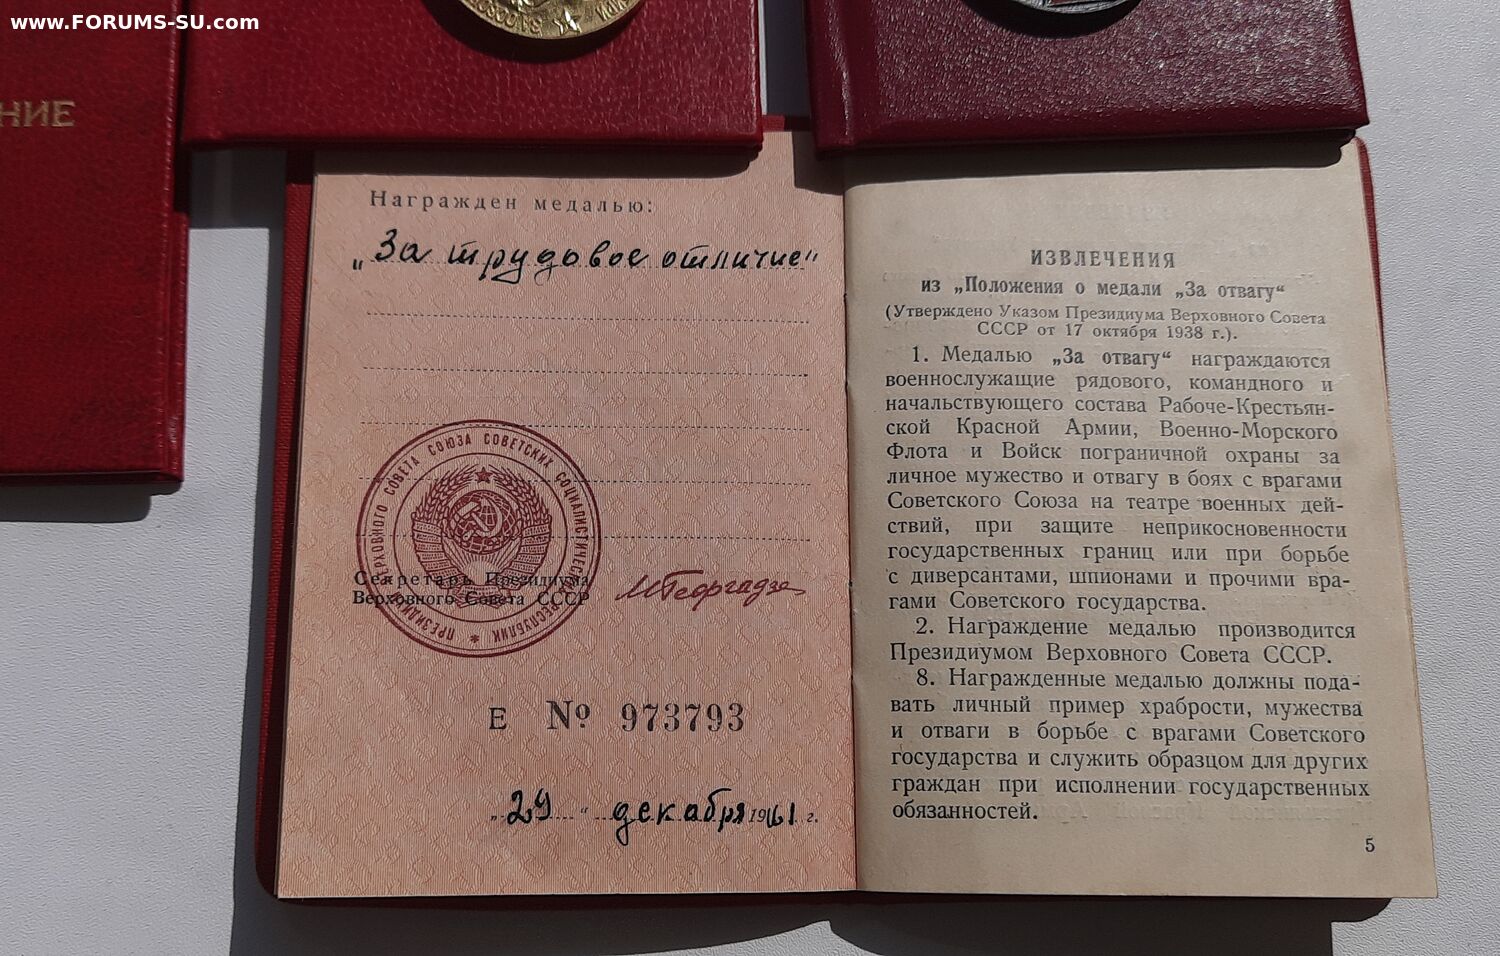 www.FORUMS-SU.com
НИЕ
Награжден медалью:
„За трудовое отличие"
ПРЕЗИДИУМ ВЕРХОВНОГО СОВЕТА СОЮЗА СОВЕТСКИХ СОЦИАЛИСТИЧЕСКИХ РЕСПУБЛИК *
Секретарь Президиума
Верховного Совета СССР
МГеоргадзе
Е № 973793
„29" декабря 1961 г.
ИЗВЛЕЧЕНИЯ
из „Положения о медали „За отвагу“
(Утверждено Указом Президиума Верховного Совета
СССР от 17 октября 1938 г.).
1. Медалью „За отвагу“ награждаются
военнослужащие рядового, командного и
начальствующего состава Рабоче-Крестьян-
ской Красной Армии, Военно-Морского
Флота и Войск пограничной охраны за
личное мужество и отвагу в боях с врагами
Советского Союза на театре военных дей-
ствий, при защите неприкосновенности
государственных границ или при борьбе
с диверсантами, шпионами и прочими вра-
гами Советского государства.
2. Награждение медалью производится
Президиумом Верховного Совета СССР.
8. Награжденные медалью должны пода-
вать личный пример храбрости, мужества
и отваги в борьбе с врагами Советского
государства и служить образцом для других
граждан при исполнении государственных
обязанностей.
5